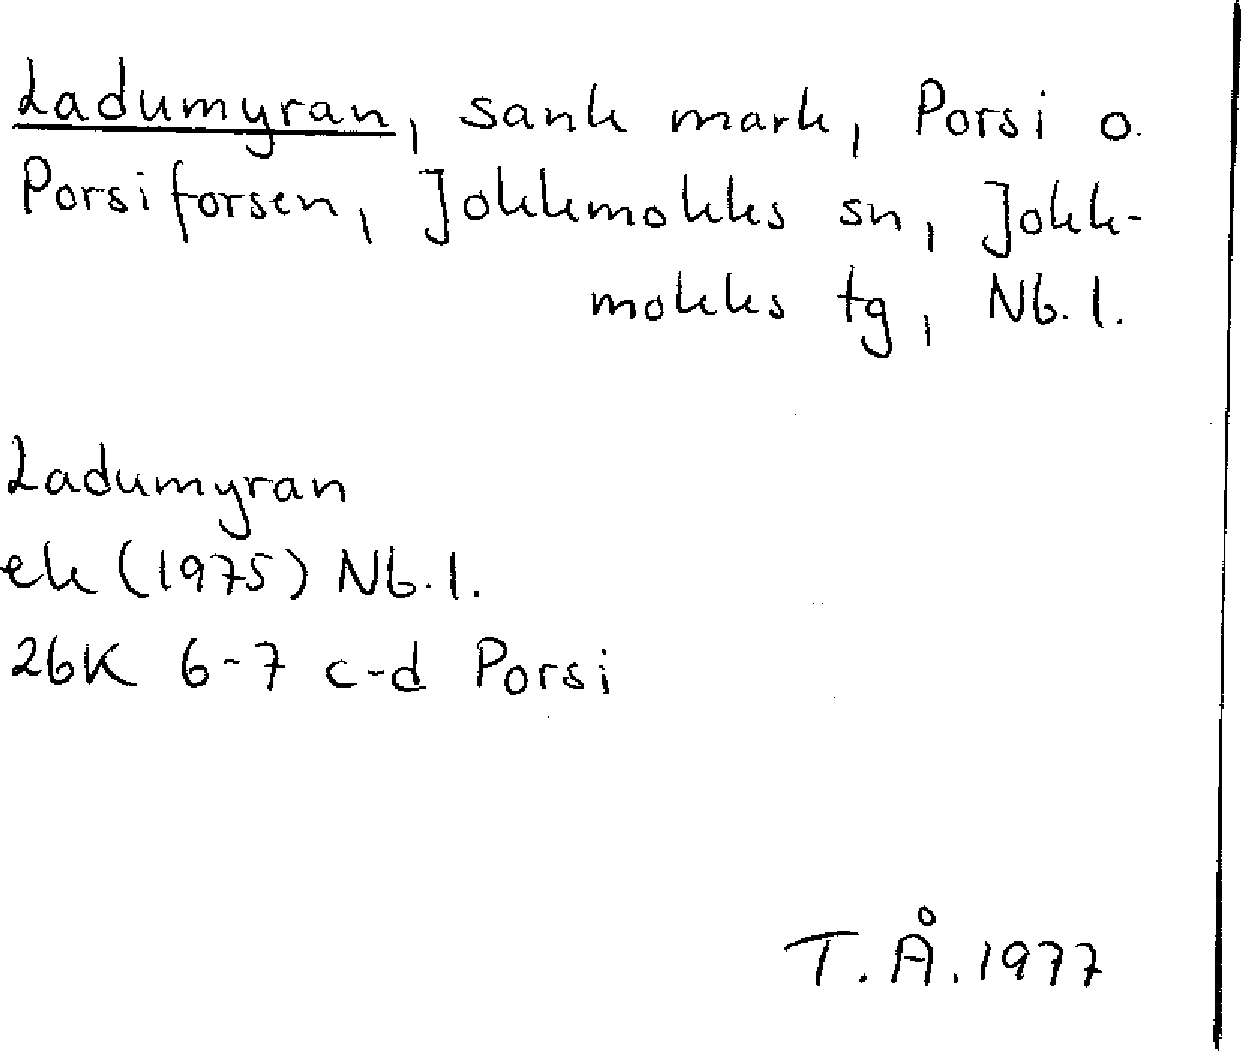 Ladumyran, sank mark, Porsi o.
Porsiforsen, Jokkmokks sn, Jokk-
mokks tg, Nb. l.
Ladumyran
ek (1975) Nb. l.
26K 6-7 c-d Porsi
T. Å. 1977